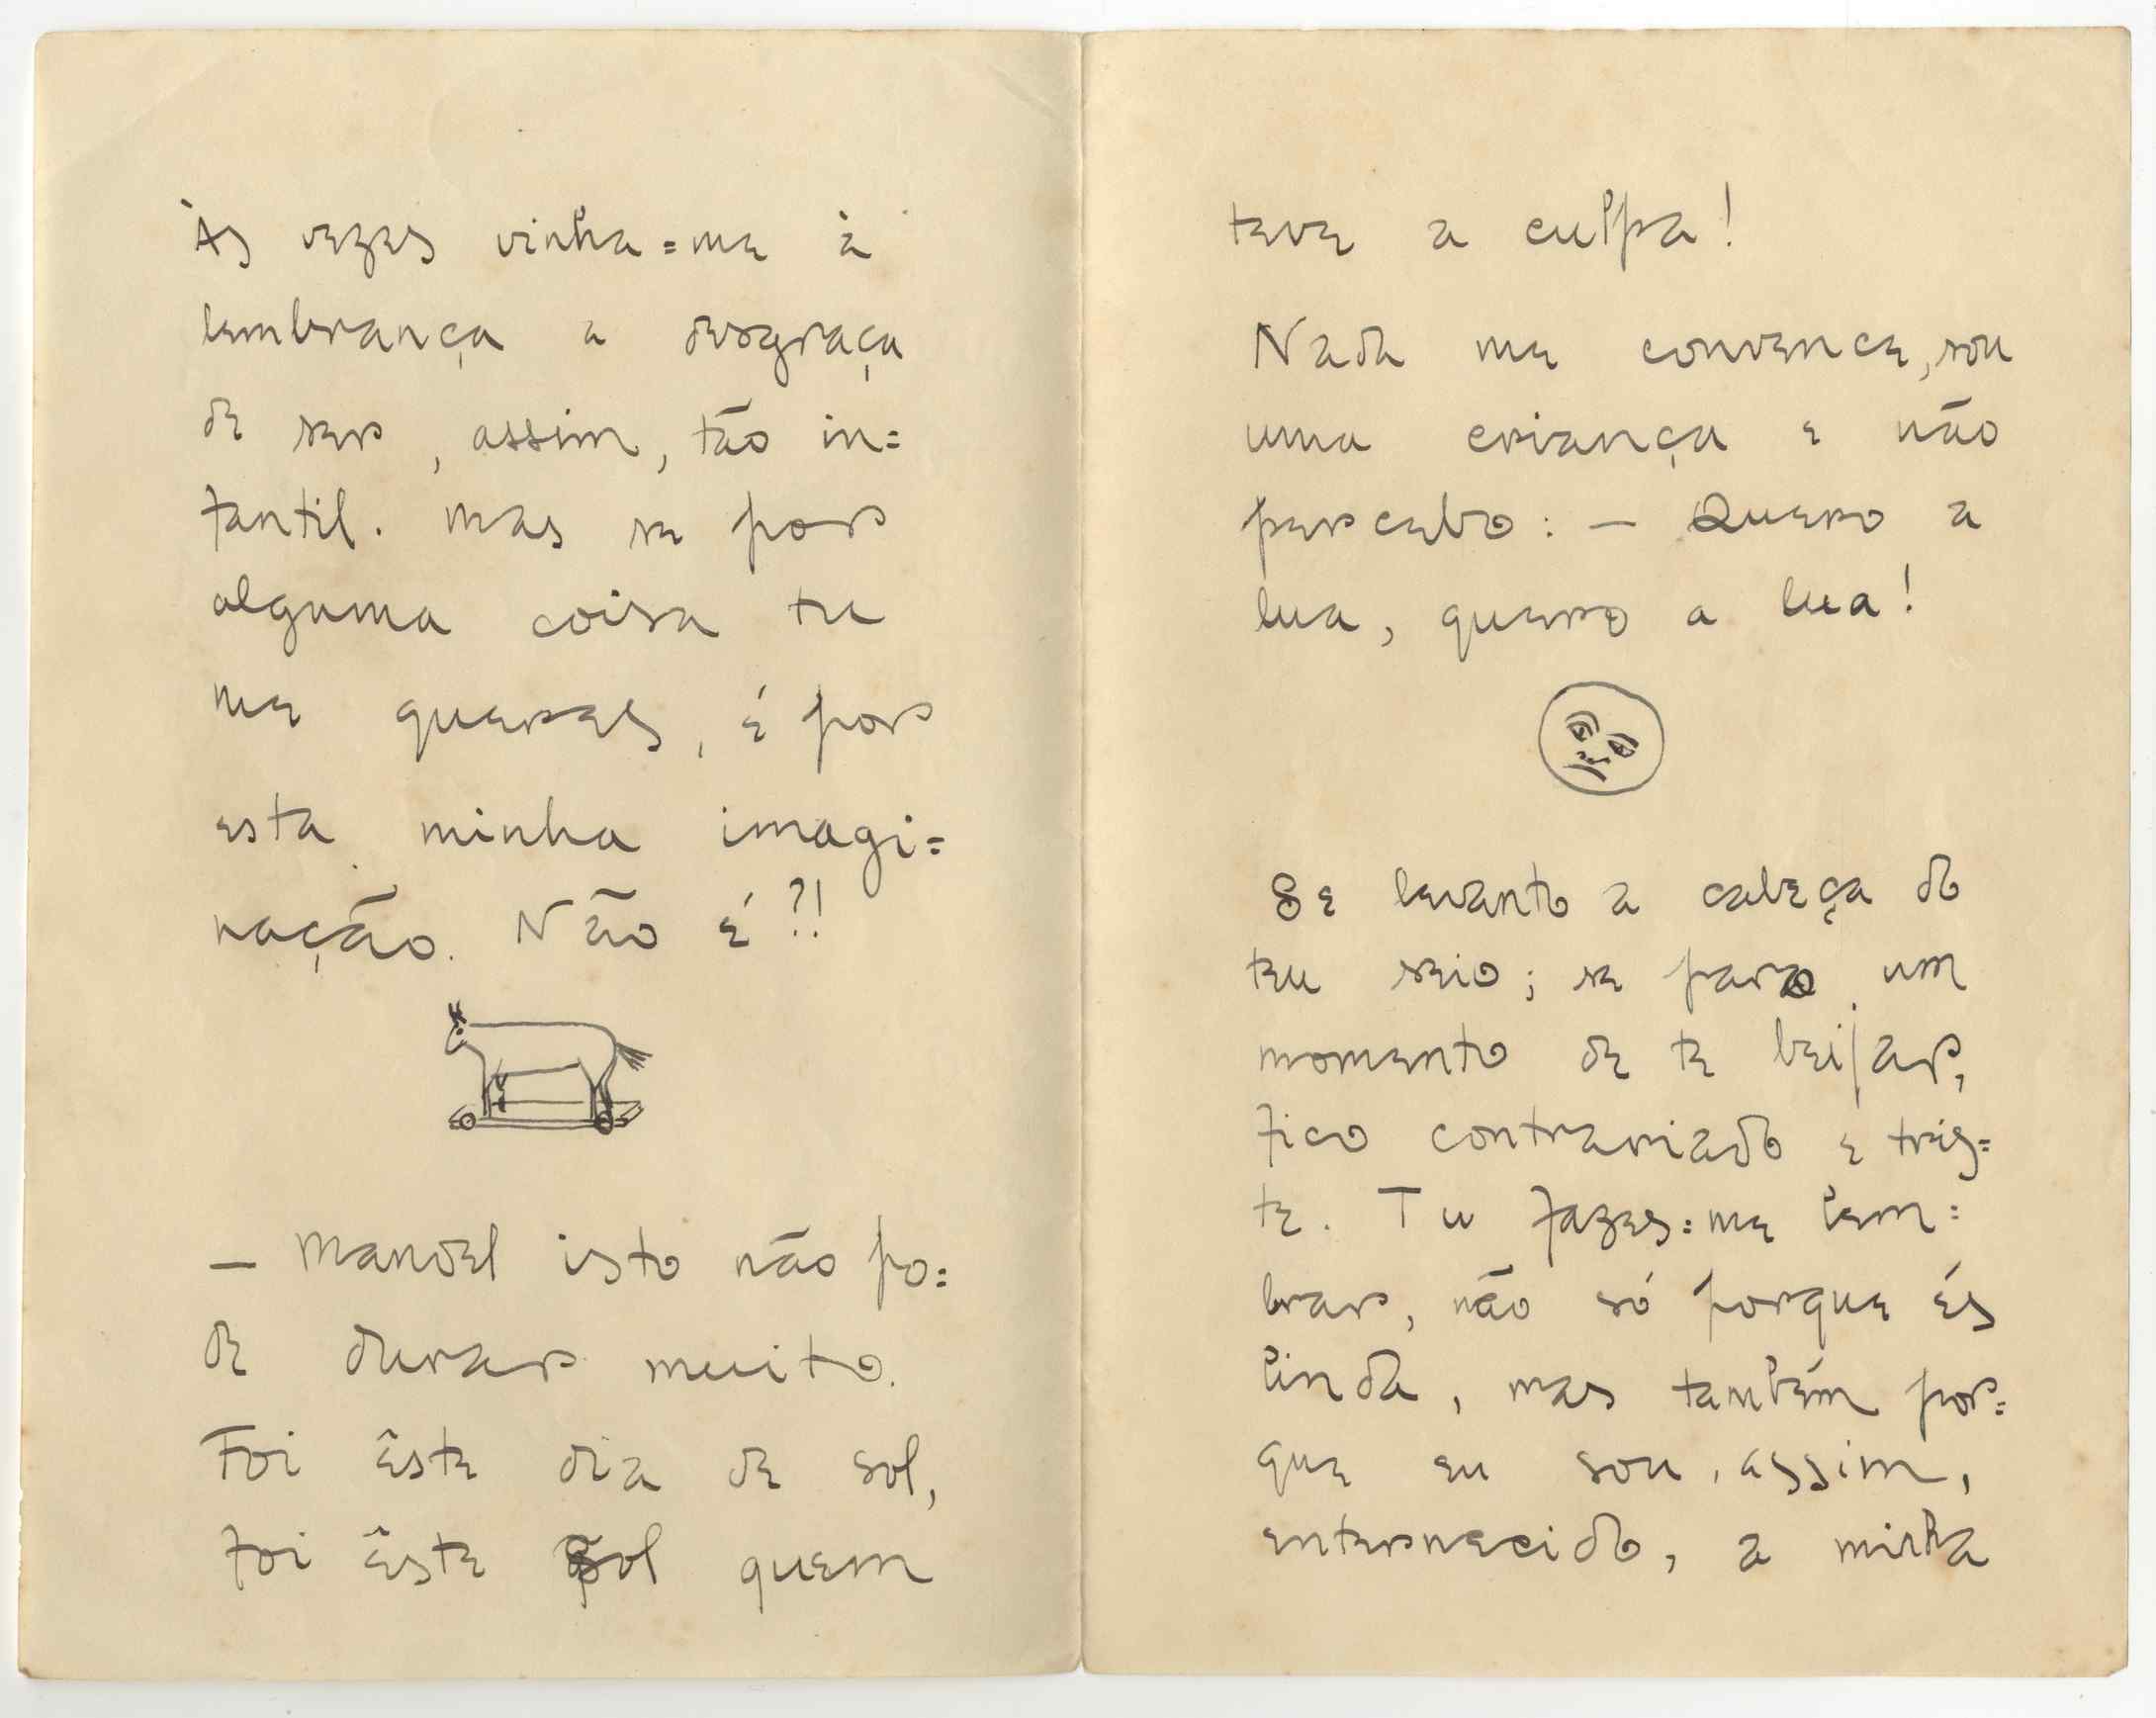 Às vezes vinha=me à
lembrança a desgraça
de ser, assim, tão in=
fantil. Mas se por
alguma coisa tu
me queres, é por
esta minha imagi=
nação. Não é?!
— Manoel isto não po=
de durar muito.
Foi êste dia de sol,
foi êste sol quem
teve a culpa!
Nada me convence, sou
uma criança e não
percebo: — Quero a
lua, quero a lua!
Se levanto a cabeça do
teu seio; se paro um
momento de te beijar,
fico contrariado e tris=
te. Tu fazes=me lem=
brar, não só porque és
linda, mas também por=
que eu sou, assim,
enternecido, a minha